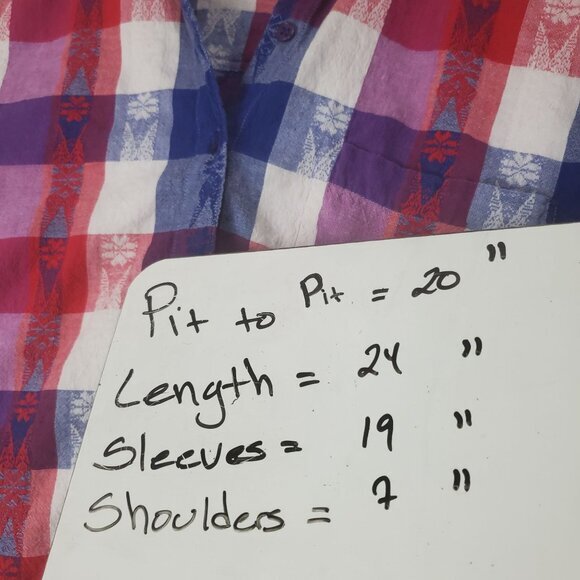 Pit to Pit = 20 "
Length = 24 "
Sleeves = 19 "
Shoulders = 7 "